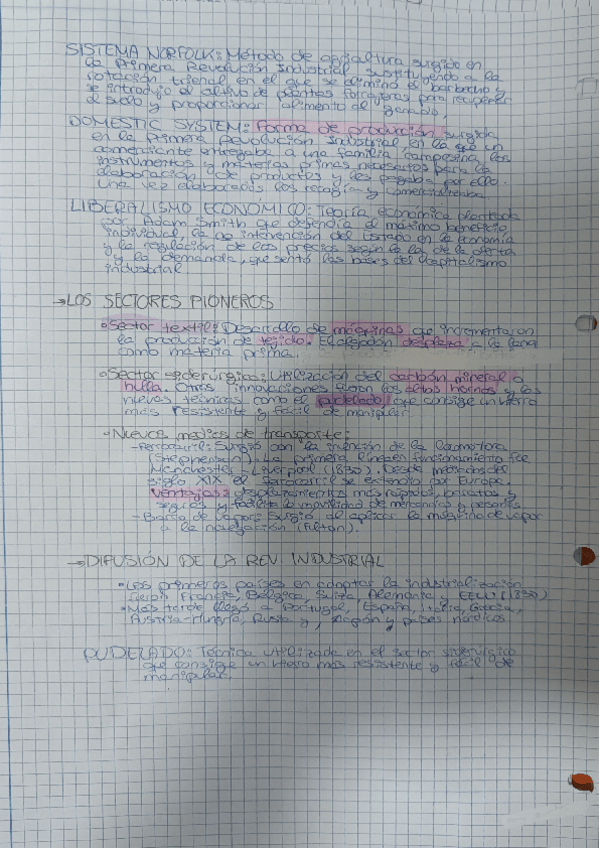 SISTEMA NORFOLK: Método de agricultura surgido en
la Primera Revolución Industrial sustituyendo a la
rotación trienal en el que se eliminó el barbecho y
se introdujo el cultivo de plantas forrajeras para recuperar
el suelo y proporcionar alimento al ganado.
DOMESTIC SYSTEM: Forma de producción surgida
en la Primera Revolución Industrial en la que un
comerciante entregaba a una familia campesina los
instrumentos y materias primas necesarios para la
elaboración de productos y les pagaba por ello
una vez elaborados los recogía y comercializaba
LIBERALISMO ECONÓMICO: Teoría económica planteada
por Adam Smith que defendía el máximo beneficio
individual, la no intervención del Estado en la economía
y la regulación de los precios según la ley de la oferta
y la demanda, que sentó las bases del capitalismo
industrial
→LOS SECTORES PIONEROS
•Sector textil: Desarrollo de máquinas que incrementaron
la producción de tejido. El algodón desplaza a la lana
como materia prima.
•Sector siderúrgico: Utilización del carbón mineral o
hulla. Otras innovaciones fueron los altos hornos y las
nuevas técnicas como el pudelado que consige un hierro
más resistente y fácil de manipular.
•Nuevos medios de transporte:
-Ferrocarril: Surgió con la invención de la locomotora
(Stephenson). La primera línea en funcionamiento fue
Manchester - Liverpool (1830). Desde mediados del
siglo XIX el ferrocarril se extendió por Europa.
Ventajas: desplazamientos más rápidos, baratos y
seguros y facilita la movilidad de mercancías y personas
-Barco de vapor: Surgió al aplicar la máquina de vapor
a la navegación (Fulton).
→DIFUSIÓN DE LA REV. INDUSTRIAL
•Los primeros países en adoptar la industrialización
fueron Francia, Bélgica, Suiza, Alemania y EEUU (1830)
•Más tarde llegó a Portugal, España, Italia, Grecia,
Austria-Hungría, Rusia y, Japón y países nórdicos
PUDELADO: Técnica utilizada en el sector siderúrgico
que consige un hierro más resistente y fácil de
manipular.